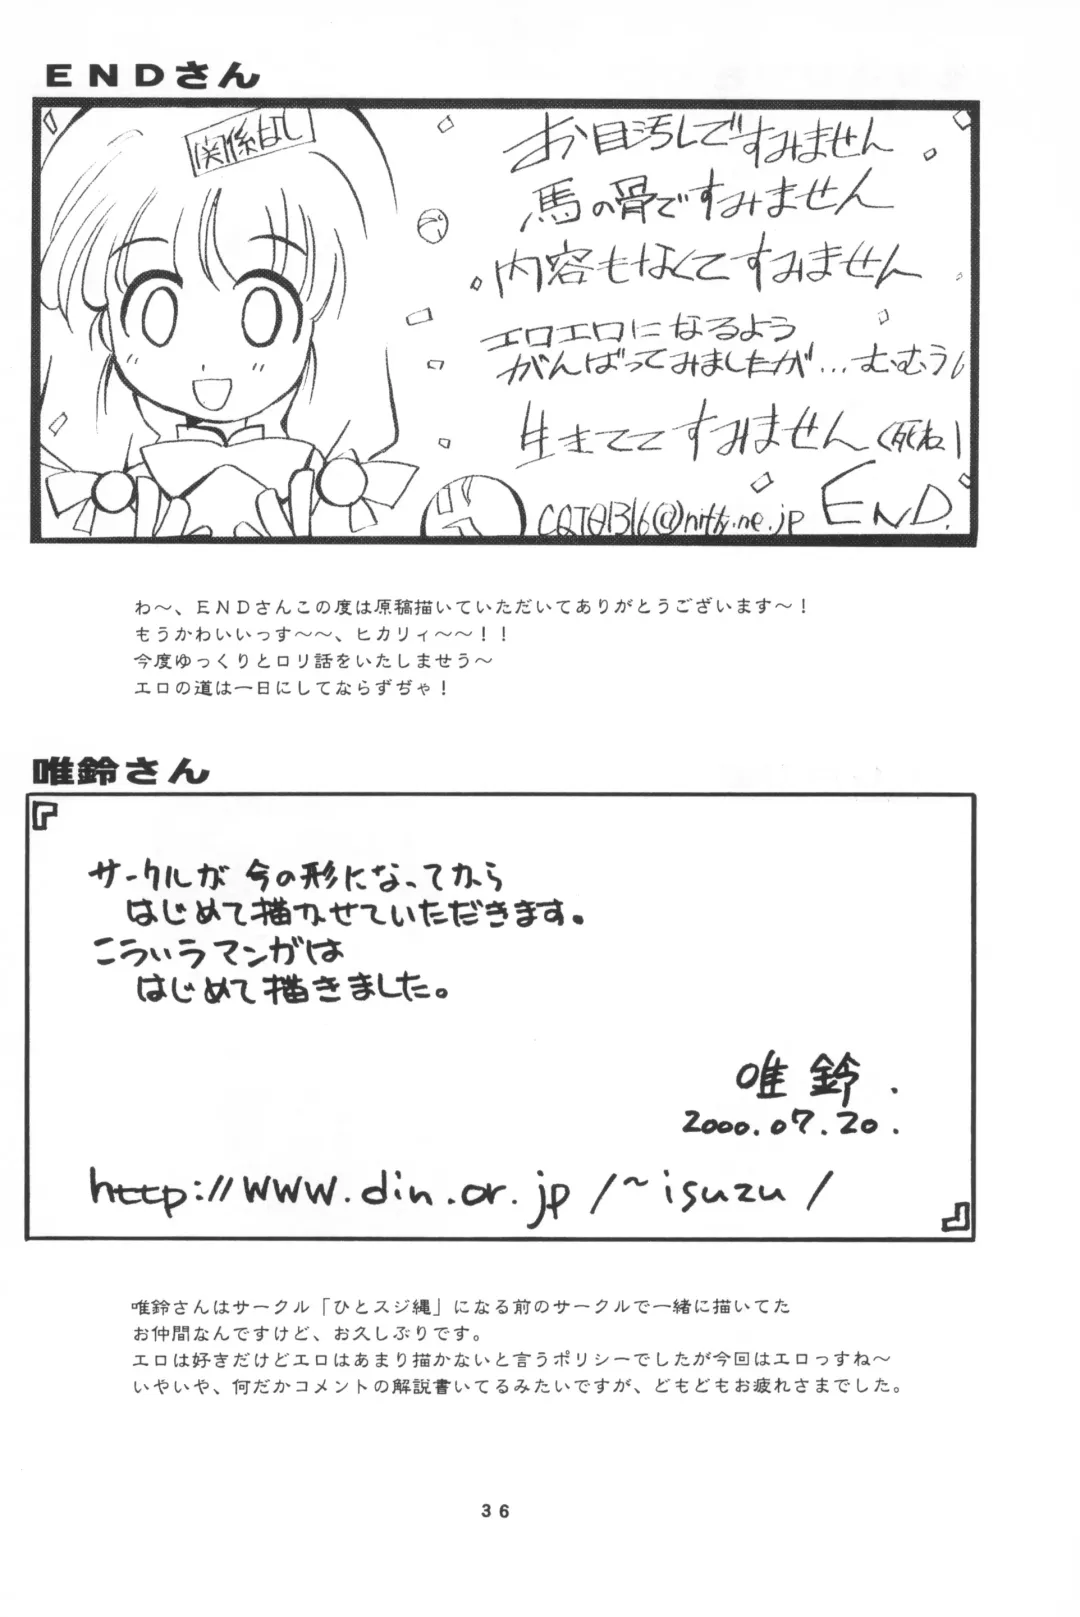 ENDさん
関係なし
お目汚しですみません
馬の骨ですみません
内容もなくてすみません
エロエロになるよう
がんばってみましたが...むむう
生きててすみません(死ね)
END.
わ〜、ENDさんこの度は原稿描いていただいてありがとうございます〜！
もうかわいいっす〜〜、ヒカリィ〜〜！！
今度ゆっくりとロリ話をいたしませう〜
エロの道は一日にしてならずぢゃ！
唯鈴さん
『
サークルが今の形になってから
はじめて描かせていただきます。
こういうマンガは
はじめて描きました。
唯鈴.
2000.07.20.
http://www.din.or.jp/~isuzu/
』
唯鈴さんはサークル「ひとスジ縄」になる前のサークルで一緒に描いてた
お仲間なんですけど、お久しぶりです。
エロは好きだけどエロはあまり描かないと言うポリシーでしたが今回はエロっすね〜
いやいや、何だかコメントの解説書いてるみたいですが、どもどもお疲れさまでした。
36